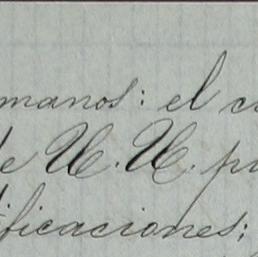 manos: el c
de U. U. p
ificaciones;